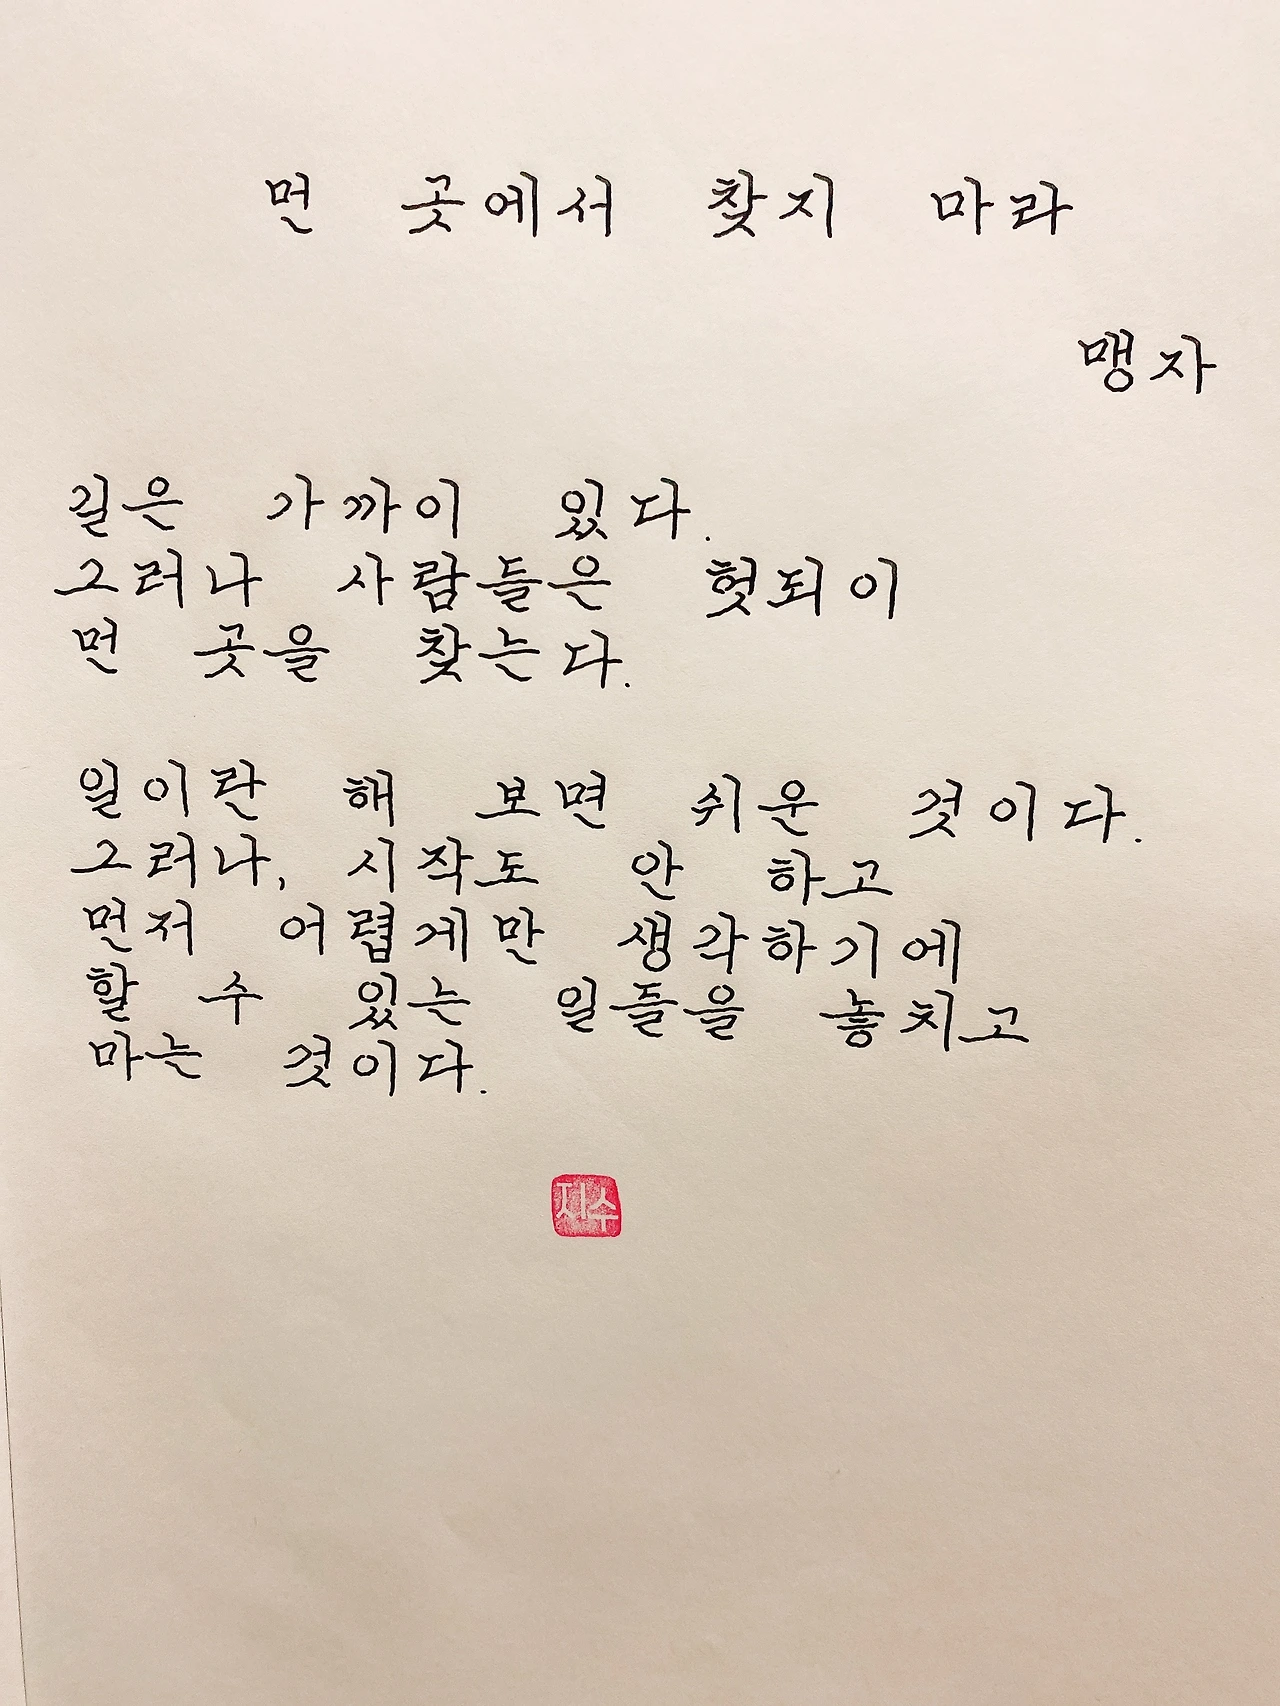 먼 곳에서 찾지 마라
맹자
길은 가까이 있다.
그러나 사람들은 헛되이
먼 곳을 찾는다.
일이란 해 보면 쉬운 것이다.
그러나, 시작도 안 하고
먼저 어렵게만 생각하기에
할 수 있는 일들을 놓치고
마는 것이다.
지수